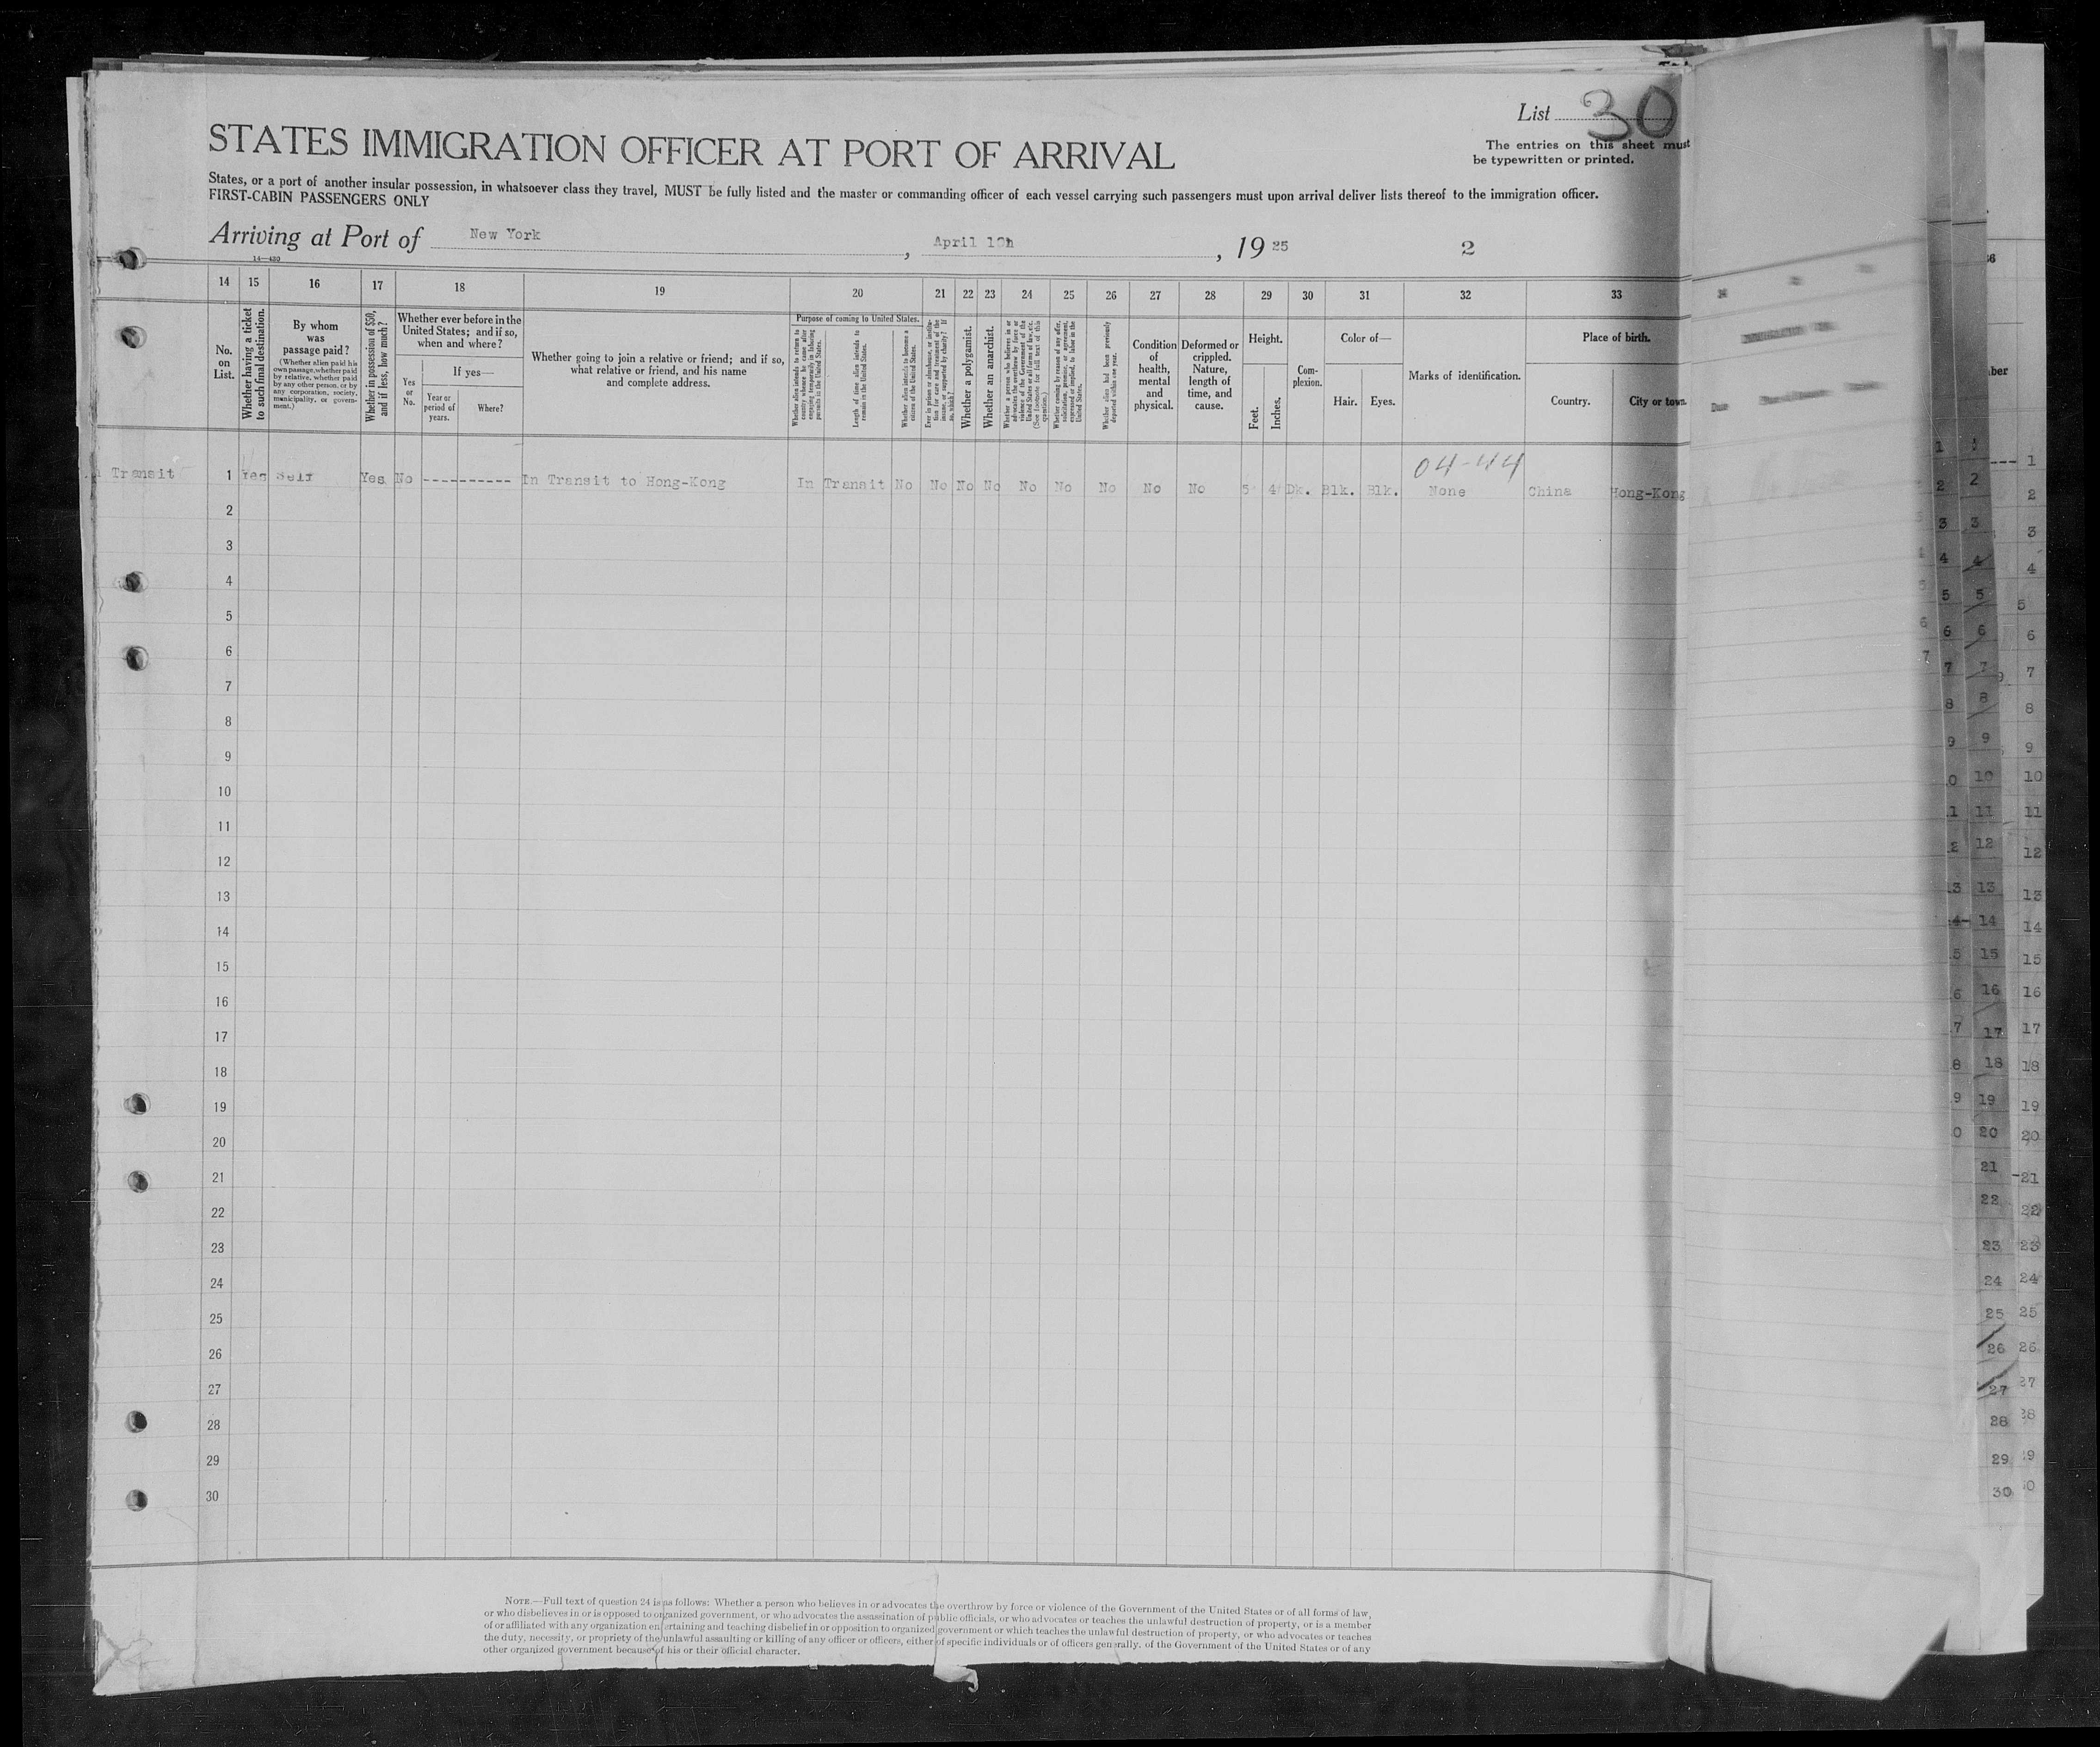 List 30
The entries on this sheet must
be typewritten or printed.
STATES IMMIGRATION OFFICER AT PORT OF ARRIVAL
States, or a port of another insular possession, in whatsoever class they travel, MUST be fully listed and the master or commanding officer of each vessel carrying such passengers must upon arrival deliver lists thereof to the immigration officer.
FIRST-CABIN PASSENGERS ONLY
Arriving at Port of New York, April, 19 25 2
14—430
14 15 16 17 18 19 20 21 22 23 24 25 26 27 28 29 30 31 32 33
No. on List.
Whether having a ticket to such final destination.
By whom was passage paid?
(Whether alien paid his own passage, whether paid by relative, whether paid by any other person, or by any corporation, society, municipality, or government.)
Whether in possession of $50, and if less, how much?
Whether ever before in the United States; and if so, when and where?
Yes or No.
If yes—
Year or period of years.
Where?
Whether going to join a relative or friend; and if so, what relative or friend, and his name and complete address.
Purpose of coming to United States.
Whether alien intends to return to country whence he came after engaging temporarily in laboring pursuits in the United States.
Length of time alien intends to remain in the United States.
Whether alien intends to become a citizen of the United States.
Ever in prison or almshouse, or institution for care and treatment of the insane, or supported by charity? If so, which?
Whether a polygamist.
Whether an anarchist.
Whether a person who believes in or advocates the overthrow by force or violence of the Government of the United States or all forms of law, etc. (See footnote for full text of this question.)
Whether coming by reason of any offer, solicitation, promise, or agreement, expressed or implied, to labor in the United States.
Whether alien had been previously deported within one year.
Condition of health, mental and physical.
Deformed or crippled. Nature, length of time, and cause.
Height.
Feet.
Inches.
Complexion.
Color of—
Hair.
Eyes.
Marks of identification.
Place of birth.
Country.
City or town.
04-44
Transit 1 Yes Self Yes No ----------- In Transit to Hong-Kong In Transit No No No No No No No No No 5 4 Dk. Blk. Blk. None China Hong-Kong
2
3
4
5
6
7
8
9
10
11
12
13
14
15
16
17
18
19
20
21
22
23
24
25
26
27
28
29
30
NOTE.—Full text of question 24 is as follows: Whether a person who believes in or advocates the overthrow by force or violence of the Government of the United States or of all forms of law,
or who disbelieves in or is opposed to organized government, or who advocates the assassination of public officials, or who advocates or teaches the unlawful destruction of property, or is a member
of or affiliated with any organization entertaining and teaching disbelief in or opposition to organized government or which teaches the unlawful destruction of property, or who advocates or teaches
the duty, necessity, or propriety of the unlawful assaulting or killing of any officer or officers, either of specific individuals or of officers generally, of the Government of the United States or of any
other organized government because of his or their official character.